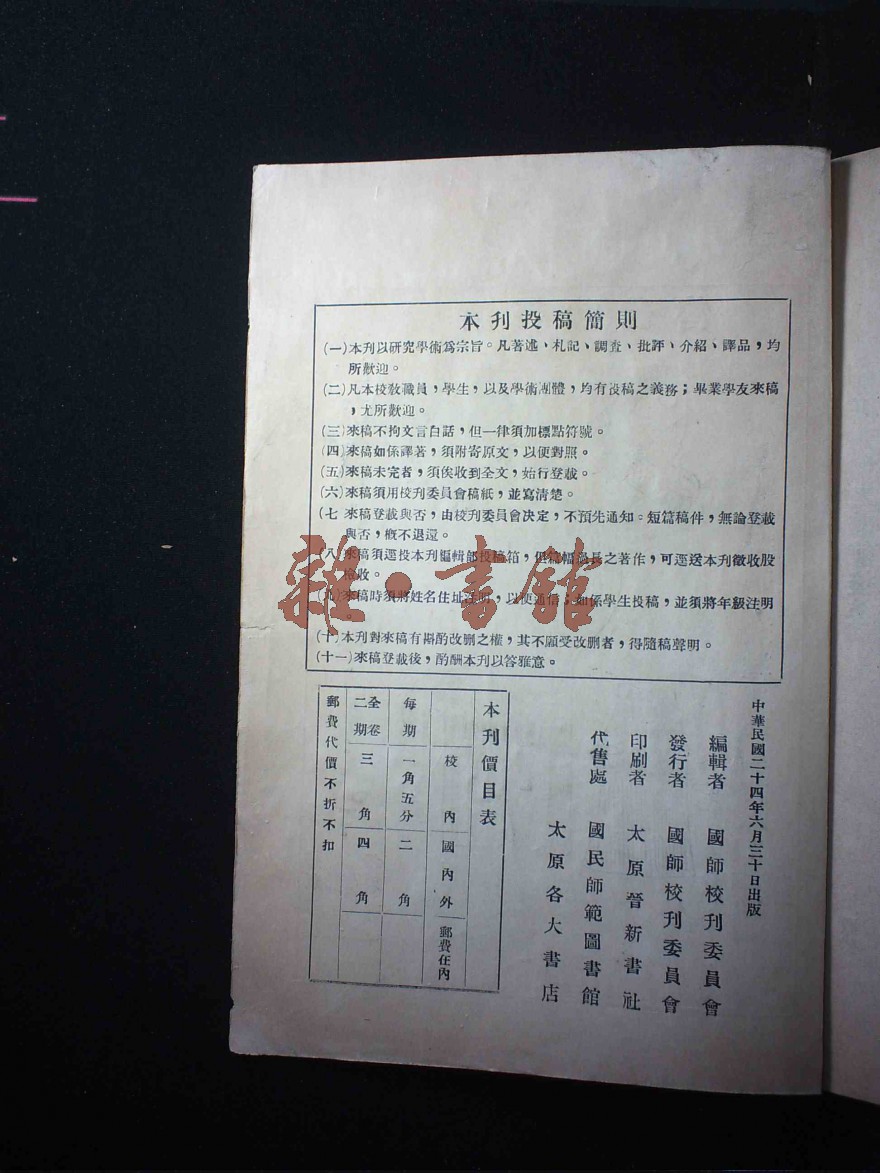 本刋投稿簡則
(一)本刋以研究學術爲宗旨。凡著述、札記、調查、批評、介紹、譯品，均
所歡迎。
(二)凡本校敎職員，學生，以及學術團體，均有投稿之義務；畢業學友來稿
，尤所歡迎。
(三)來稿不拘文言白話，但一律須加標點符號。
(四)來稿如係譯著，須附寄原文，以便對照。
(五)來稿未完者，須俟收到全文，始行登載。
(六)來稿須用校刋委員會稿紙，並寫清楚。
(七 來稿登載與否，由校刋委員會决定，不預先通知。短篇稿件，無論登載
與否，槪不退還。
(八)來稿須逕投本刋編輯部投稿箱，但篇幅過長之著作，可逕送本刋徵收股
檢收。
(九)來稿時須將姓名住址注明，以便通信；如係學生投稿，並須將年級注明
。
(十)本刋對來稿有斟酌改删之權，其不願受改删者，得隨稿聲明。
(十一)來稿登載後，酌酬本刋以答雅意。
中華民國二十四年六月三十日出版
編輯者 國師校刋委員會
發行者 國師校刋委員會
印刷者 太原晉新書社
代售處 國民師範圖書館
太原各大書店
本刋價目表
校內 國內外 郵費在內
每期 一角五分 二角
全卷二期 三角 四角
郵費代價不折不扣
雜·書館